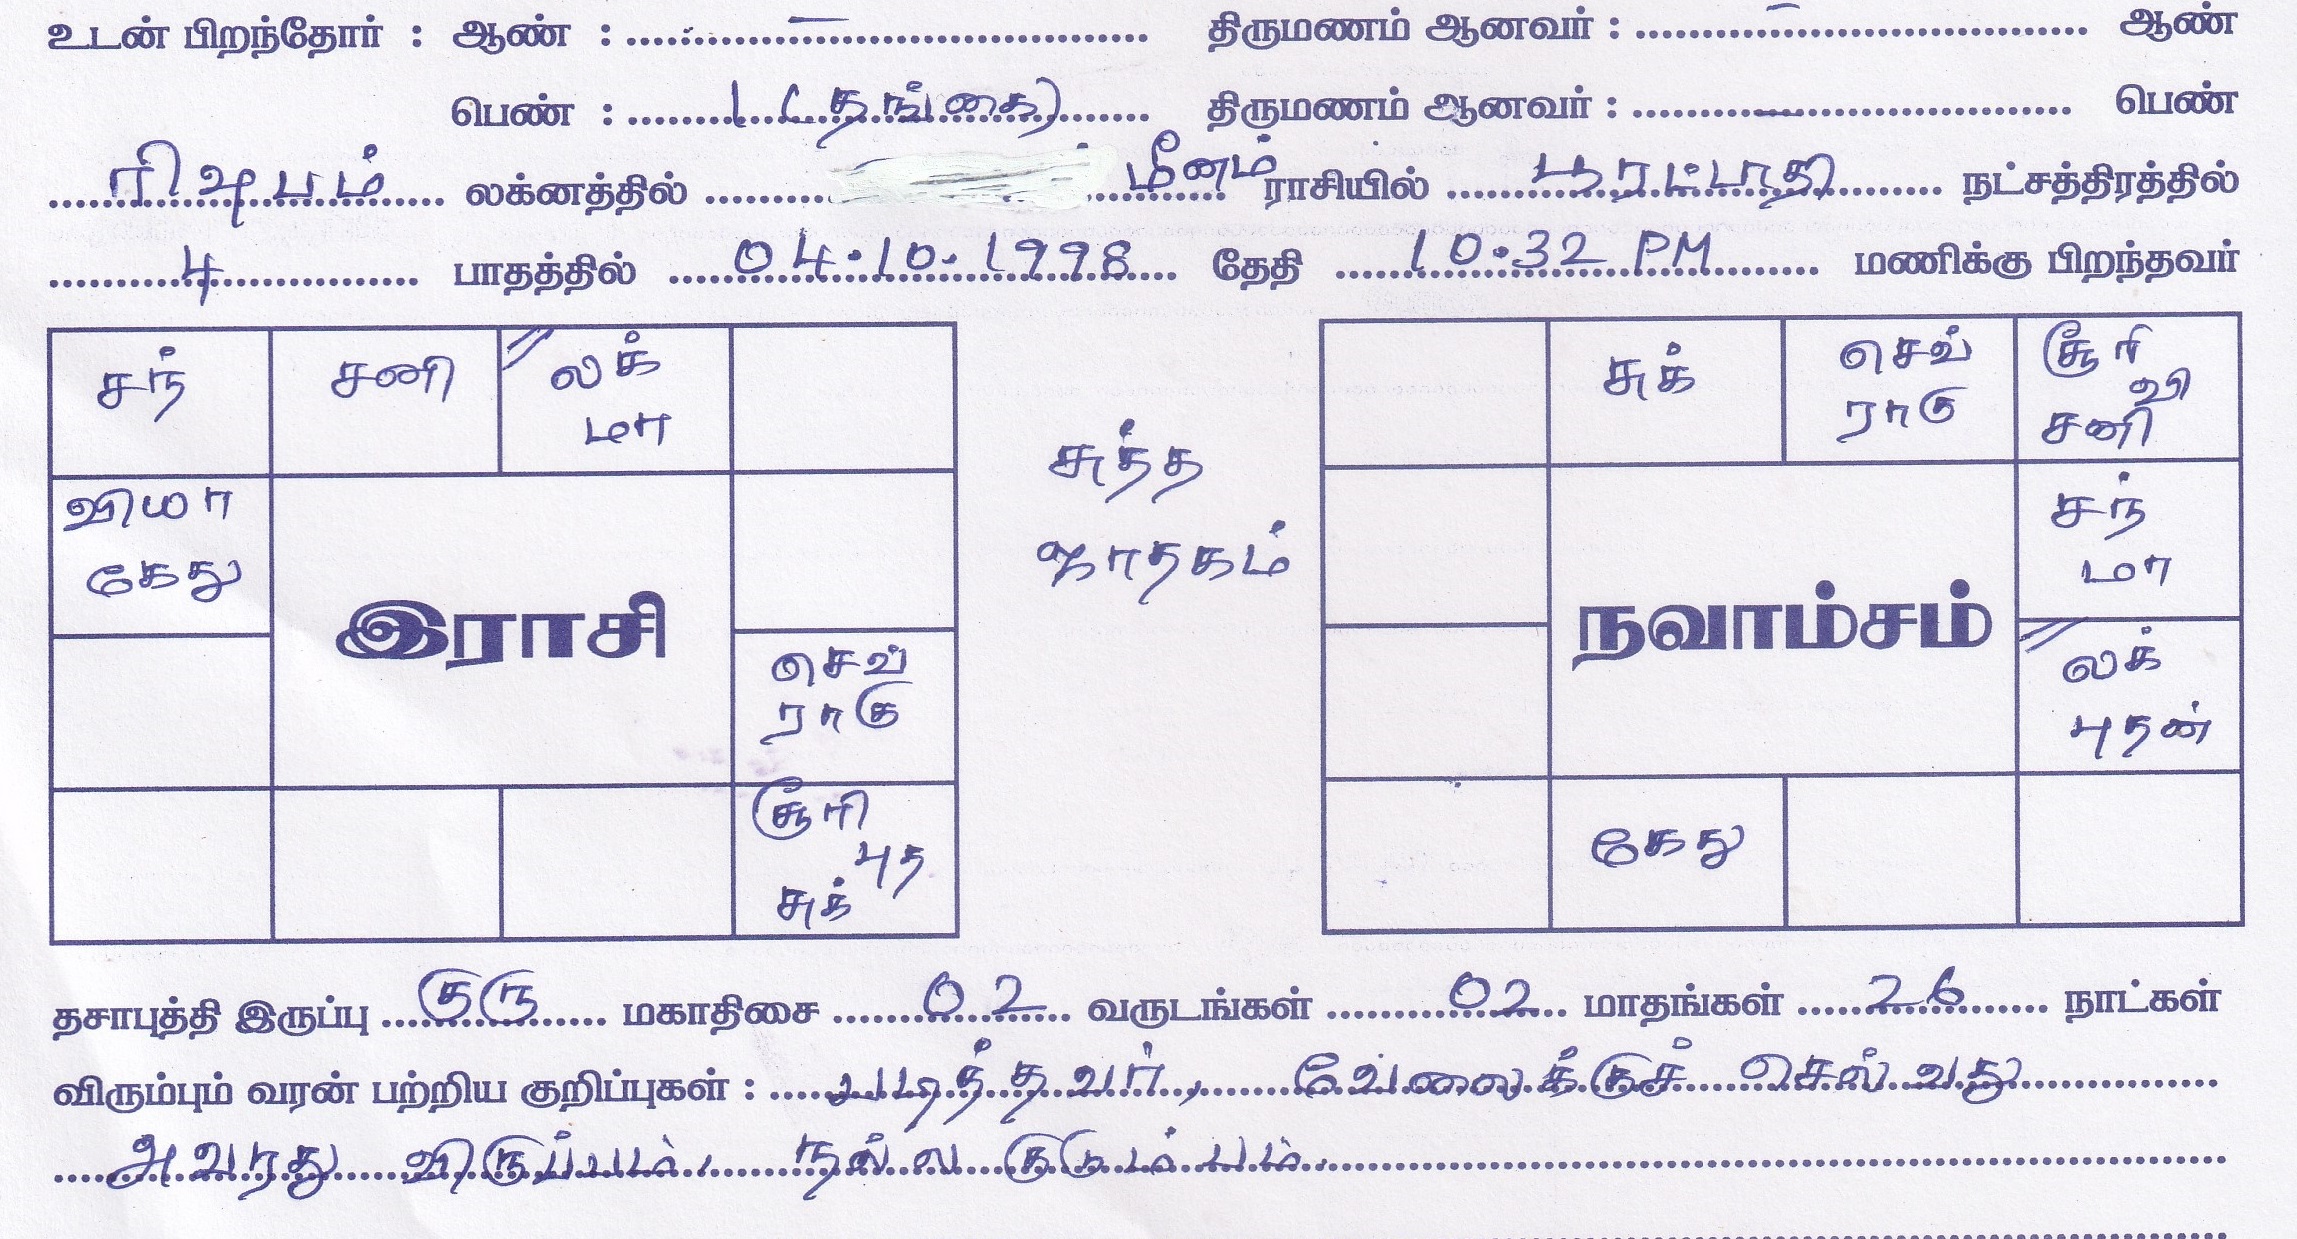 உடன் பிறந்தோர் : ஆண் : – திருமணம் ஆனவர் : – ஆண்
பெண் : 1 (தங்கை) திருமணம் ஆனவர் : – பெண்
ரிஷபம் லக்னத்தில் மீனம் ராசியில் பூரட்டாதி நட்சத்திரத்தில்
4 பாதத்தில் 04.10.1998 தேதி 10:32 PM மணிக்கு பிறந்தவர்
சந் சனி லக் மா
வியா கேது
இராசி
செவ் ராகு
சூரி புத சுக்
சுத்த
ஜாதகம்
சுக் செவ் ராகு சூரி வி சனி
சந் மா
நவாம்சம்
லக் புதன்
கேது
தசாபுத்தி இருப்பு குரு மகாதிசை 02 வருடங்கள் 02 மாதங்கள் 26 நாட்கள்
விரும்பும் வரன் பற்றிய குறிப்புகள் : படித்தவர், வேலைக்குச் செல்வது
அவரது விருப்பம், நல்ல குடும்பம்.